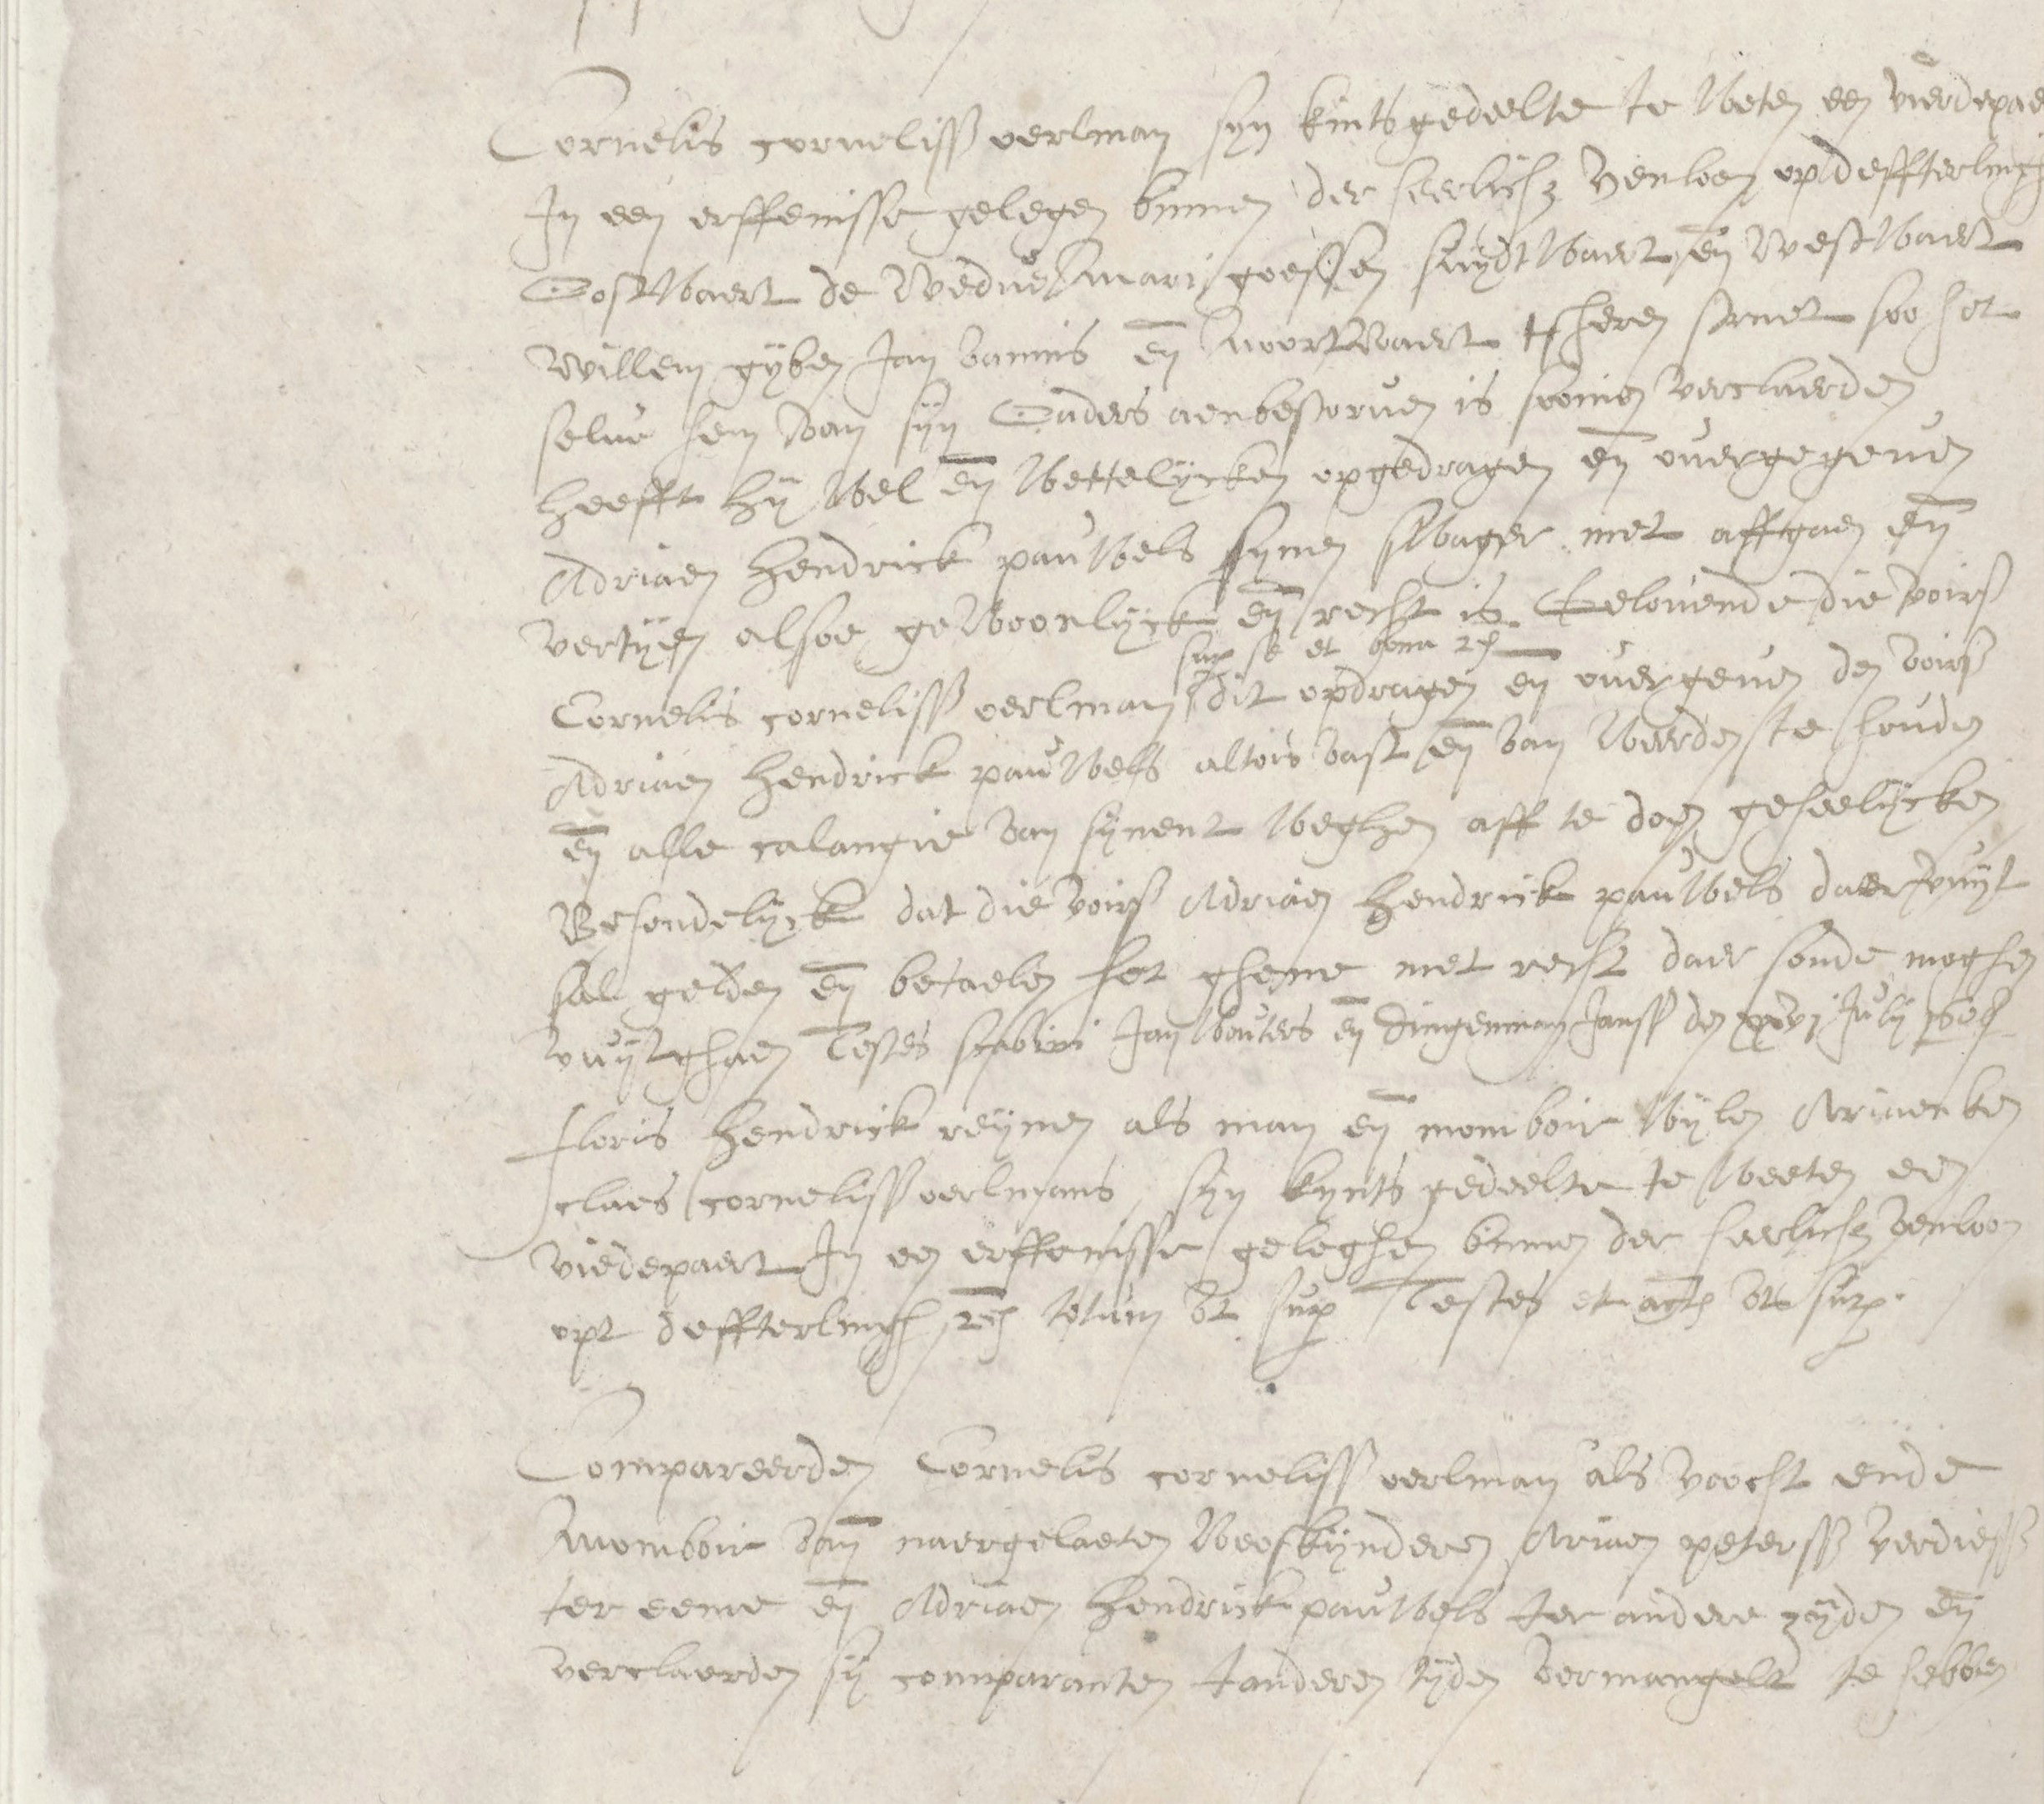 Cornelis corneliss oerlman syn kintsgedeelte te weten een vierdepae
In een erffenisse gelegen binnen der heerlich venloon op deffterlingh
Oostwaert de weduë Mari goessen suydtwaert en westwaert
willem gyben Jan bamis en Noortwaert tsheren straet soo het
selve hem van syn Ouders aenbestorven is soomen verclaerden
heefft hÿ wel en wettelÿcken opgedragen en overgegeven
Adriaen Hendrick pauwels synen swager met affgaen en
vertÿen alsoe gewoonlÿck en recht is Gelovende die voirs
sup se et bona
Cornelis corneliss oerlman dit opdragen en overgeven den voirs
Adriaen Hendrick pauwels altois vast en van weerden te houden
en alle calangie van synent weghen aff te doen geheelÿcken
Behendelÿck dat die voirs Adriaen Hendrick pauwels daer vuÿt
sal gelden en betaelen het ghene met recht daer sonde moghen
vuÿtghaen Testes scabini Jan wouters en Dingenman Janss den Julÿ
floris Hendrick reÿnen als man en momboir wÿlen Ariaenken
claes corneliss oerlmans syn kynts gedeelte te weeten een
viedepaert In een erffenisse geleghen binnen der heerlich venloon
opt deffterlingh totum ut sup Testes et act ut sup.
Compareerden Cornelis corneliss oerlman als voocht ende
Momboir van naergelaeten weeskynderen Ariaen peterss verdiess
ter eenre en Adriaen Hendrick pauwels ter andere zÿden en
verclaerden sÿ comparanten tanderen tÿden vermangelt te hebben